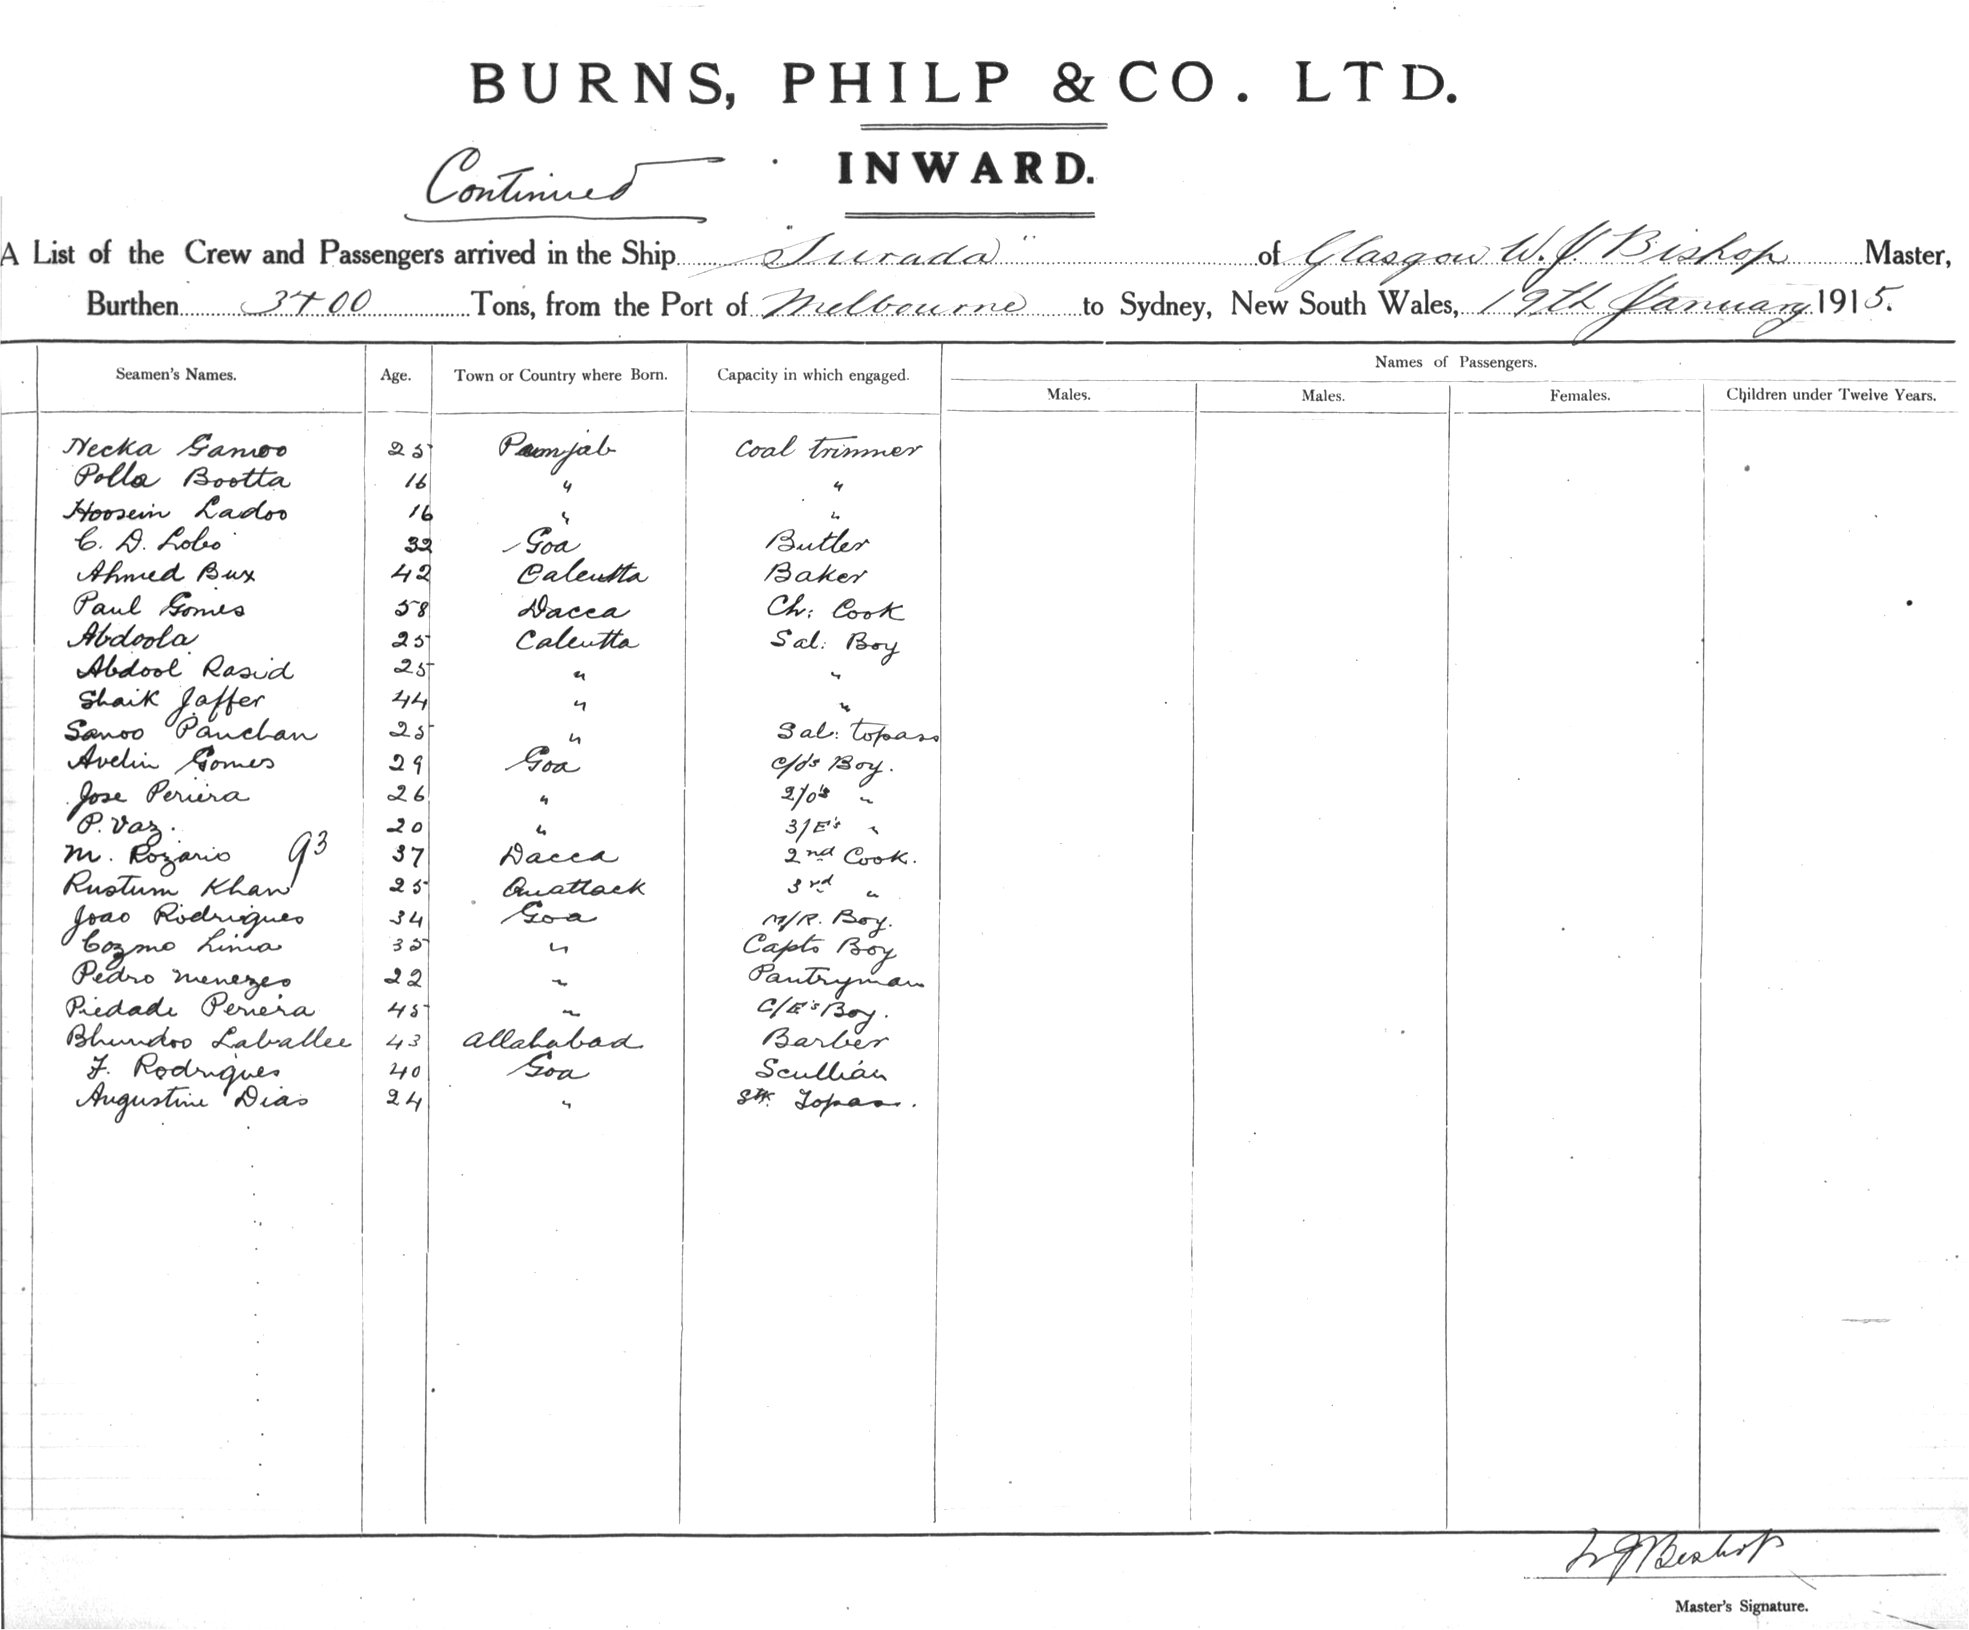 BURNS, PHILP & CO. LTD.
INWARD.
Continued
A List of the Crew and Passengers arrived in the Ship "Surada" of Glasgow W. J. Bishop Master,
Burthen 3400 Tons, from the Port of Melbourne to Sydney, New South Wales, 19th January 1915.
Names of Passengers.
Seamen's Names. Age. Town or Country where Born. Capacity in which engaged. Males. Males. Females. Children under Twelve Years.
Necka Gamoo 25 Punjab Coal trimmer
Polla Bootta 16 " "
Hoosein Ladoo 16 " "
C. D. Lobo 32 Goa Butler
Ahmed Bux 42 Calcutta Baker
Paul Gomes 58 Dacca Ch: Cook
Abdoola 25 Calcutta Sal: Boy
Abdool Rasid 25 " "
Shaik Jaffer 44 " "
Sanoo Panchan 25 " Sal: topass
Avelin Gomes 29 Goa C/O's Boy.
Jose Periera 26 " 2/O's "
P. Vaz. 20 " 3/E's "
M. Rozario 37 Dacca 2nd Cook.
93
Rustum Khan 25 3rd "
Joao Rodrigues 34 Goa M/R. Boy.
Cozmo Lima 35 " Capts Boy
Pedro Menezes 22 " Pantryman
Piedade Periera 45 " C/E's Boy.
Bhundoo Laballee 43 Allahabad Barber
F. Rodrigues 40 Goa Scullian
Augustine Dias 24 " Topass.
W J Bishop
Master's Signature.